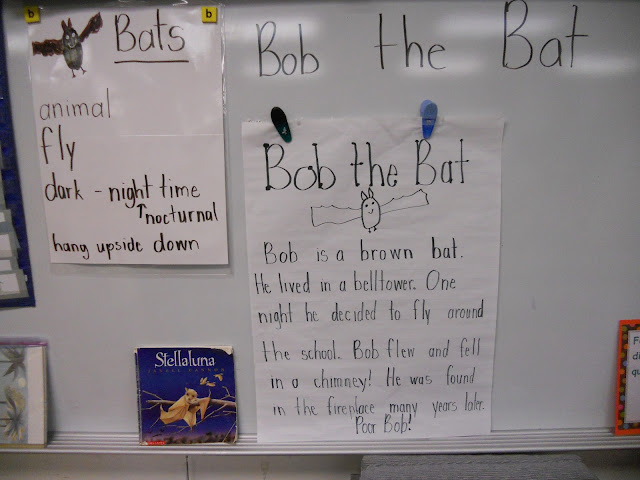 b
b
Bats
animal
fly
dark - night time
↑nocturnal
hang upside down
Bob the Bat
Bob the Bat
Bob is a brown bat.
He lived in a belltower. One
night he decided to fly around
the school. Bob flew and fell
in a chimney! He was found
in the fireplace many years later.
Poor Bob!
Stellaluna